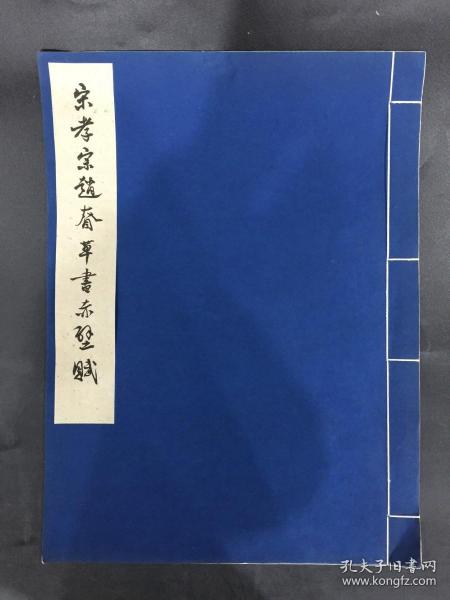 宋孝宗趙昚草書赤壁賦
孔夫子旧书网
www.kongfz.com